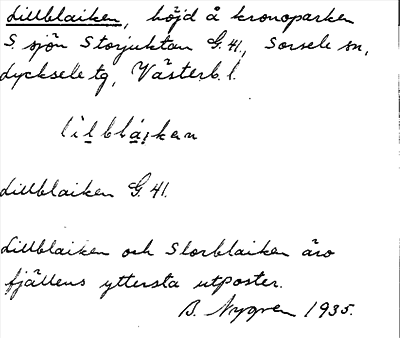 Lillblaiken, höjd å kronoparken
S. sjön Storjuktan G.41., Sorsele sn,
Lycksele tg, Västerb. l.
lìlblái̯ken
Lillblaiken G.41.
Lillblaiken och Storblaiken äro
fjällens yttersta utposter.
B. Nygren 1935.